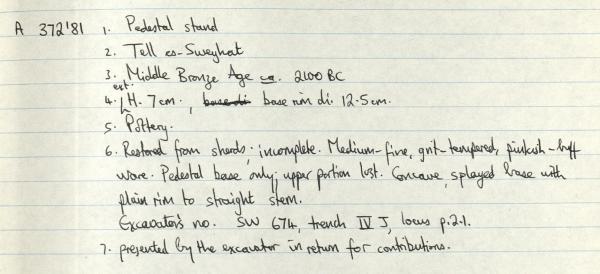 A 372'81 1. Pedestal stand
2. Tell es-Sweyhat
3. Middle Bronze Age ca. 2100 BC
4. ext. H. 7cm., base di base rim di. 12.5cm.
5. Pottery.
6. Restored from sherds; incomplete. Medium-fine, grit-tempered, pinkish-buff
ware. Pedestal base only; upper portion lost. Concave, splayed base with
plain rim to straight stem.
Excavator's no. SW 674, trench IV J, locus p.2.1.
7. presented by the excavator in return for contributions.